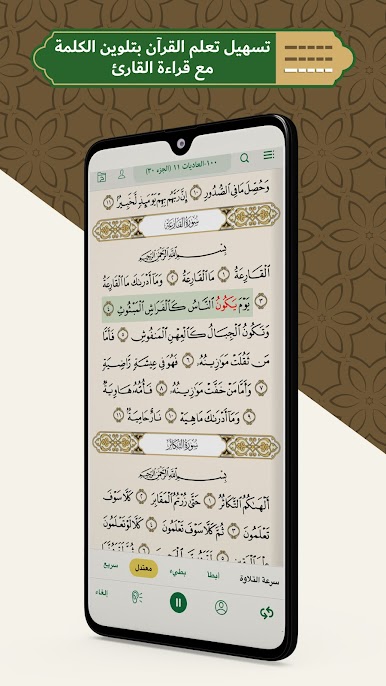 تسهيل تعلم القرآن بتلوين الكلمة
مع قراءة القارئ
١٠٠-العاديات ١١ (الجزء ٣٠)
وَحُصِّلَ مَا فِي الصُّدُورِ ١٠ إِنَّ رَبَّهُم بِهِمْ يَوْمَئِذٍ لَّخَبِيرٌ ١١
سُورَةُ القَارِعَةِ
بِسْمِ اللَّهِ الرَّحْمَنِ الرَّحِيمِ
الْقَارِعَةُ ١ مَا الْقَارِعَةُ ٢ وَمَا أَدْرَاكَ مَا الْقَارِعَةُ
٣ يَوْمَ يَكُونُ النَّاسُ كَالْفَرَاشِ الْمَبْثُوثِ ٤
وَتَكُونُ الْجِبَالُ كَالْعِهْنِ الْمَنفُوشِ ٥ فَأَمَّا
مَن ثَقُلَتْ مَوَازِينُهُ ٦ فَهُوَ فِي عِيشَةٍ رَّاضِيَةٍ
٧ وَأَمَّا مَنْ خَفَّتْ مَوَازِينُهُ ٨ فَأُمُّهُ هَاوِيَةٌ
٩ وَمَا أَدْرَاكَ مَا هِيَهْ ١٠ نَارٌ حَامِيَةٌ ١١
سُورَةُ التَّكَاثُرِ
بِسْمِ اللَّهِ الرَّحْمَنِ الرَّحِيمِ
أَلْهَاكُمُ التَّكَاثُرُ ١ حَتَّى زُرْتُمُ الْمَقَابِرَ ٢ كَلَّا سَوْفَ
تَعْلَمُونَ ٣ ثُمَّ كَلَّا سَوْفَ تَعْلَمُونَ ٤ كَلَّا لَوْ تَعْلَمُونَ
سرعة التلاوة ابطأ بطيء معتدل سريع
إلغاء